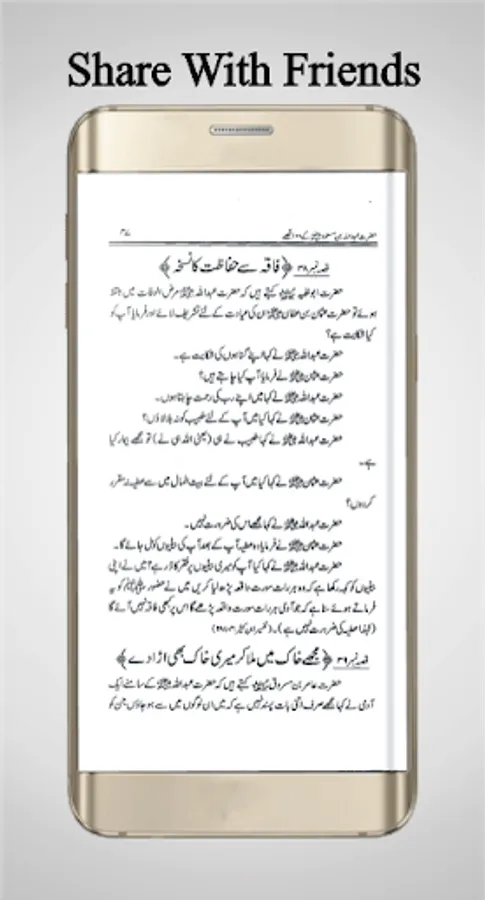 Share With Friends
حضرت عبداللہ بن مسعودؓ کے ۱۰۰ قصے
۳۷
قصہ نمبر ۳۸ ﴿فاقہ سے حفاظت کا نسخہ﴾
حضرت ابوظبیہ کہتے ہیں کہ حضرت عبداللہ مرض الوفات میں مبتلا
ہوئے تو حضرت عثمان بن عفان ان کی عیادت کے لئے تشریف لائے اور فرمایا آپ کو
کیا شکایت ہے؟
حضرت عبداللہ نے کہا اپنے گناہوں کی شکایت ہے۔
حضرت عثمان نے فرمایا آپ کیا چاہتے ہیں؟
حضرت عبداللہ نے کہا میں اپنے رب کی رحمت چاہتا ہوں۔
حضرت عثمان نے کہا کیا میں آپ کے لئے طبیب کو نہ بلا لاؤں؟
حضرت عبداللہ نے کہا طبیب نے ہی (یعنی اللہ ہی نے) تو مجھے بیمار کیا
ہے۔
حضرت عثمان نے کہا کیا میں آپ کے لئے بیت المال میں سے عطیہ نہ مقرر
کر دوں؟
حضرت عبداللہ نے کہا مجھے اس کی ضرورت نہیں۔
حضرت عثمان نے فرمایا وہ عطیہ آپ کے بعد آپ کی بیٹیوں کو مل جائے گا۔
حضرت عبداللہ نے کہا کیا آپ کو میری بیٹیوں پر فقر کا ڈر ہے میں نے اپنی
بیٹیوں کو کہہ رکھا ہے کہ وہ ہر رات سورت واقعہ پڑھ لیا کریں میں نے حضور ﷺ کو یہ
فرماتے ہوئے سنا ہے کہ جو آدمی ہر رات سورت واقعہ پڑھے گا اس پر کبھی فاقہ نہیں آئے گا
(لہٰذا عطیہ کی ضرورت نہیں ہے)۔ (تفسیر ابن کثیر
قصہ نمبر ۳۹ ﴿مجھے خاک میں ملا کر میری خاک بھی اڑا دے﴾
حضرت عامر بن مسروق کہتے ہیں کہ حضرت عبداللہ کے سامنے ایک
آدمی نے کہا مجھے صرف اتنی بات پسند نہیں ہے کہ میں ان لوگوں میں سے ہو جاؤں جن کو